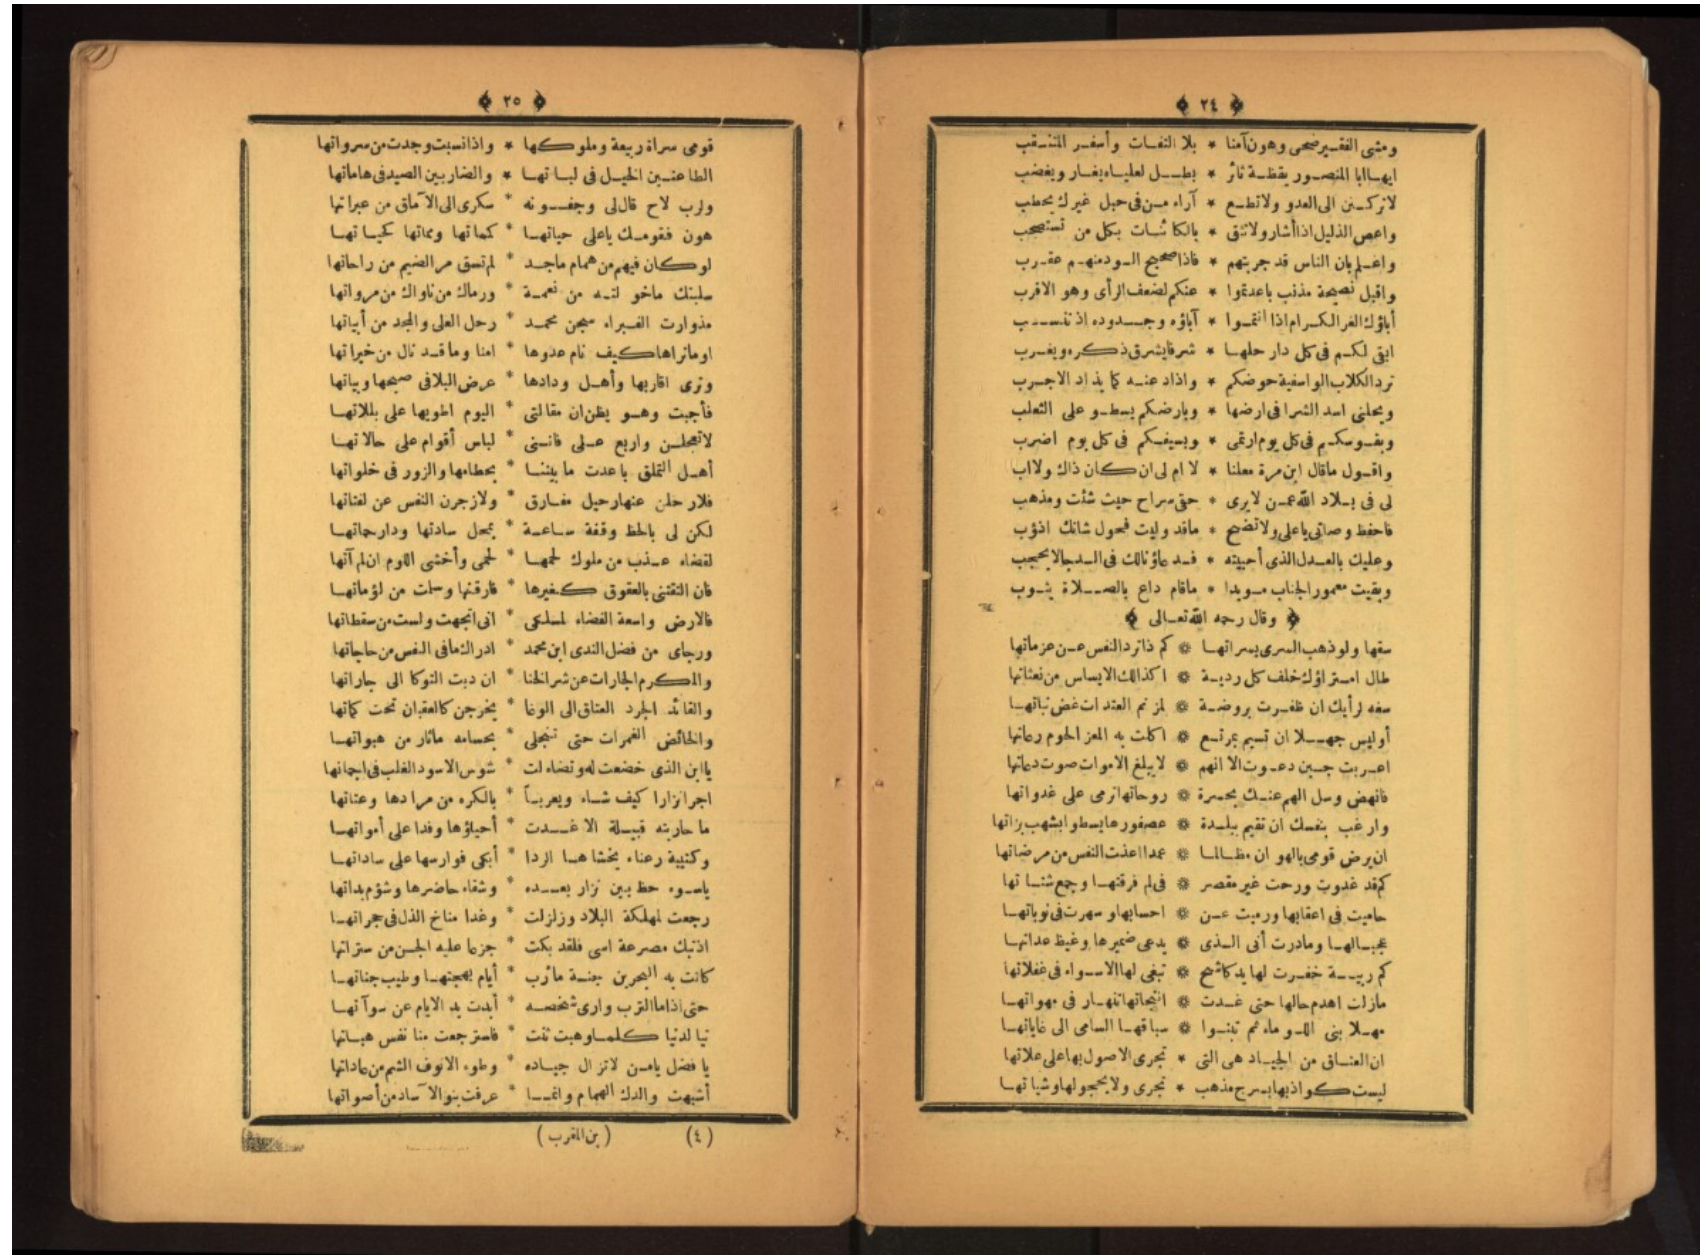 ﴿ ٢٤ ﴾
ومشى الفقير ضحى وهون آمنا * بلا التفات وأسفر المتنقب
ايها ابا المنصور يقظة ثائر * بطل لعلياه يغار ويغضب
لا تركنن الى العدو ولا تطع * آراء من فى حبل غيرك يحطب
واعص الذليل اذا أشار ولا تثق * بالكائنات بكل من تستصحب
واعلم بان الناس قد جربتهم * فاذا صحيح الود منهم عقرب
واقبل نصيحة مذنب باعدتموا * عنكم لضعف الرأى وهو الاقرب
أباؤك الغر الكرام اذا انتموا * آباؤه وجدوده اذ تنسب
ابقى لكم فى كل دار حلها * شرفا يشرق ذكره ويغرب
ترد الكلاب الواسفية حوضكم * واذاد عنه كما يذاد الاجرب
ويحلنى اسد الشرا فى ارضها * وبارضكم يسطو على الثعلب
وبقوسكم فى كل يوم ارتمى * وبسيفكم فى كل يوم اضرب
واقول ماقال ابن مرة معلنا * لا ام لى ان كان ذاك ولا اب
لى فى بلاد الله عمن لا يرى * حقى سراح حيث شئت ومذهب
فاحفظ وصاتى ياعلى ولا تضيع * ماقد وليت فحول شانك اذؤب
وعليك بالعدل الذى أحييته * فدعاؤنا لك فى الدجا لا يحجب
وبقيت معمور الجناب مويدا * ماقام داع بالصلاة يثوب
﴿ وقال رحمه الله تعالى ﴾
سقها ولو ذهب السرى بسراتها * كم ذا ترد النفس عن عزماتها
طال امتراؤك خلف كل ردية * اكذالك الايساس من نعثاتها
سفه لرأيك ان ظفرت بروضة * لمزنم العتدات غض نباتها
أوليس جهلا ان تسيم بمرتع * اكلت به المعز الحوم رعاتها
اعربت حين دعوت الا انهم * لا يبلغ الاموات صوت دعاتها
فانهض وسل الهم عنك بحسرة * روحاتها ترمى على غدواتها
وارغب بنفسك ان تقيم ببلدة * عصفورها يسطو ابشهب بزاتها
ان يرض قومى بالهو ان مظالما * عمدا اعذت النفس من مرضاتها
كم قد غدوت ورحت غير مقصر * فى لم فرقتها وجمع شتاتها
حاميت فى اعقابها ورميت عن * احسابها وسهرت فى نوباتها
عجبا لها ومادرت أنى الذى * يدعى ضميرها وغيظ عداتها
كم ريبة خفرت لها يد كاشح * تبغى لها الاسواء فى غفلاتها
مازلت اهدم حالها حتى غدت * انتيجاتها تنهار فى مهواتها
مهلا بنى اللوماء لم تبنوا * سباقها السامى الى غاياتها
ان العتاق من الجياد هى التى * تجرى الاصول بها على علاتها
ليست كواذبها بسرج مذهب * تجرى ولا بحجولها وشياتها
﴿ ٢٥ ﴾
قومى سراة ربيعة وملوكها * واذا نسبت وجدت من سرواتها
الطاعنين الخيل فى لباتها * والضاربين الصيد فى هاماتها
ولرب لاح قال لى وجفونه * سكرى الى الآماق من عبراتها
هون فقومك ياعلى حياتها * كمماتها ومماتها كحياتها
لو كان فيهم من همام ماجد * لم تسق مر الضيم من راحاتها
سلبتك ماخولته من نعمة * ورماك من ناواك من مرواتها
مذوارت الغبراء سبجن محمد * رحل العلى والمجد من أبياتها
اوماتراها كيف نام عدوها * امنا وماقد نال من خيراتها
وترى اقاربها وأهل ودادها * عرض البلا فى صبحها وبياتها
فأجبت وهو يظن ان مقالتى * اليوم اطويها على بللاتها
لا تعجلن واربع على فاننى * لباس أقوام على حالاتها
أهل التملق باعدت مابيننا * بحطامها والزور فى خلواتها
فلارحلن عنها رحيل مفارق * ولازجرن النفس عن لفتاتها
لكن لى بالخط وقفة ساعة * بمحل سادتها ودار حماتها
لقضاء عذب من ملوك لحمها * لحمى وأخشى اللوم ان لم آتها
فان التقتنى بالعقوق كغيرها * فارقتها وسلمت من لؤماتها
فالارض واسعة الفضاء لمسلكى * انى اتجهت ولست من سقطاتها
ورجاى من فضل الندى ابن محمد * ادراك مافى النفس من حاجاتها
والمكرم الجارات عن شر الخنا * ان دبت النوكا الى جاراتها
والقائد الجرد العتاق الى الوغا * يخرجن كالعقبان تحت كماتها
والخائض الغمرات حتى تنجلى * بحسامه ماثار من هبواتها
يا ابن الذى خضعت له وتضاءلت * شوس الاسود الغلب فى اجماتها
اجرا نزارا كيف شاء ويعربا * بالكره من مرادها وعتاتها
ما حاربته قبيلة الا غدت * أحياؤها وفدا على أمواتها
وكتيبة رعناء يخشاها الردا * أبكى فوارسها على ساداتها
ياسوء حظ بين نزار بعده * وشقاء حاضرها وشؤم بداتها
رجعت لمهلكة البلاد وزلزلت * وغدا مناخ الذل فى حجراتها
اذتبك مصرعة اسى فلقد بكت * جزعا عليه الجن من ستراتها
كانت به البحرين جنة مأرب * أيام بهجتها وطيب جناتها
حتى اذاما الترب وارى شخصه * أبدت يد الايام عن سوآتها
تبا لدنيا كلما وهبت ثنت * فاسترجعت منا نفس هباتها
يا فضل يامن لا تزال جياده * وطء الانوف الشم من عاداتها
أشبهت والدك الهمام وانما * عرفت بنو الآساد من أصواتها
(٤) (بن المقرب)